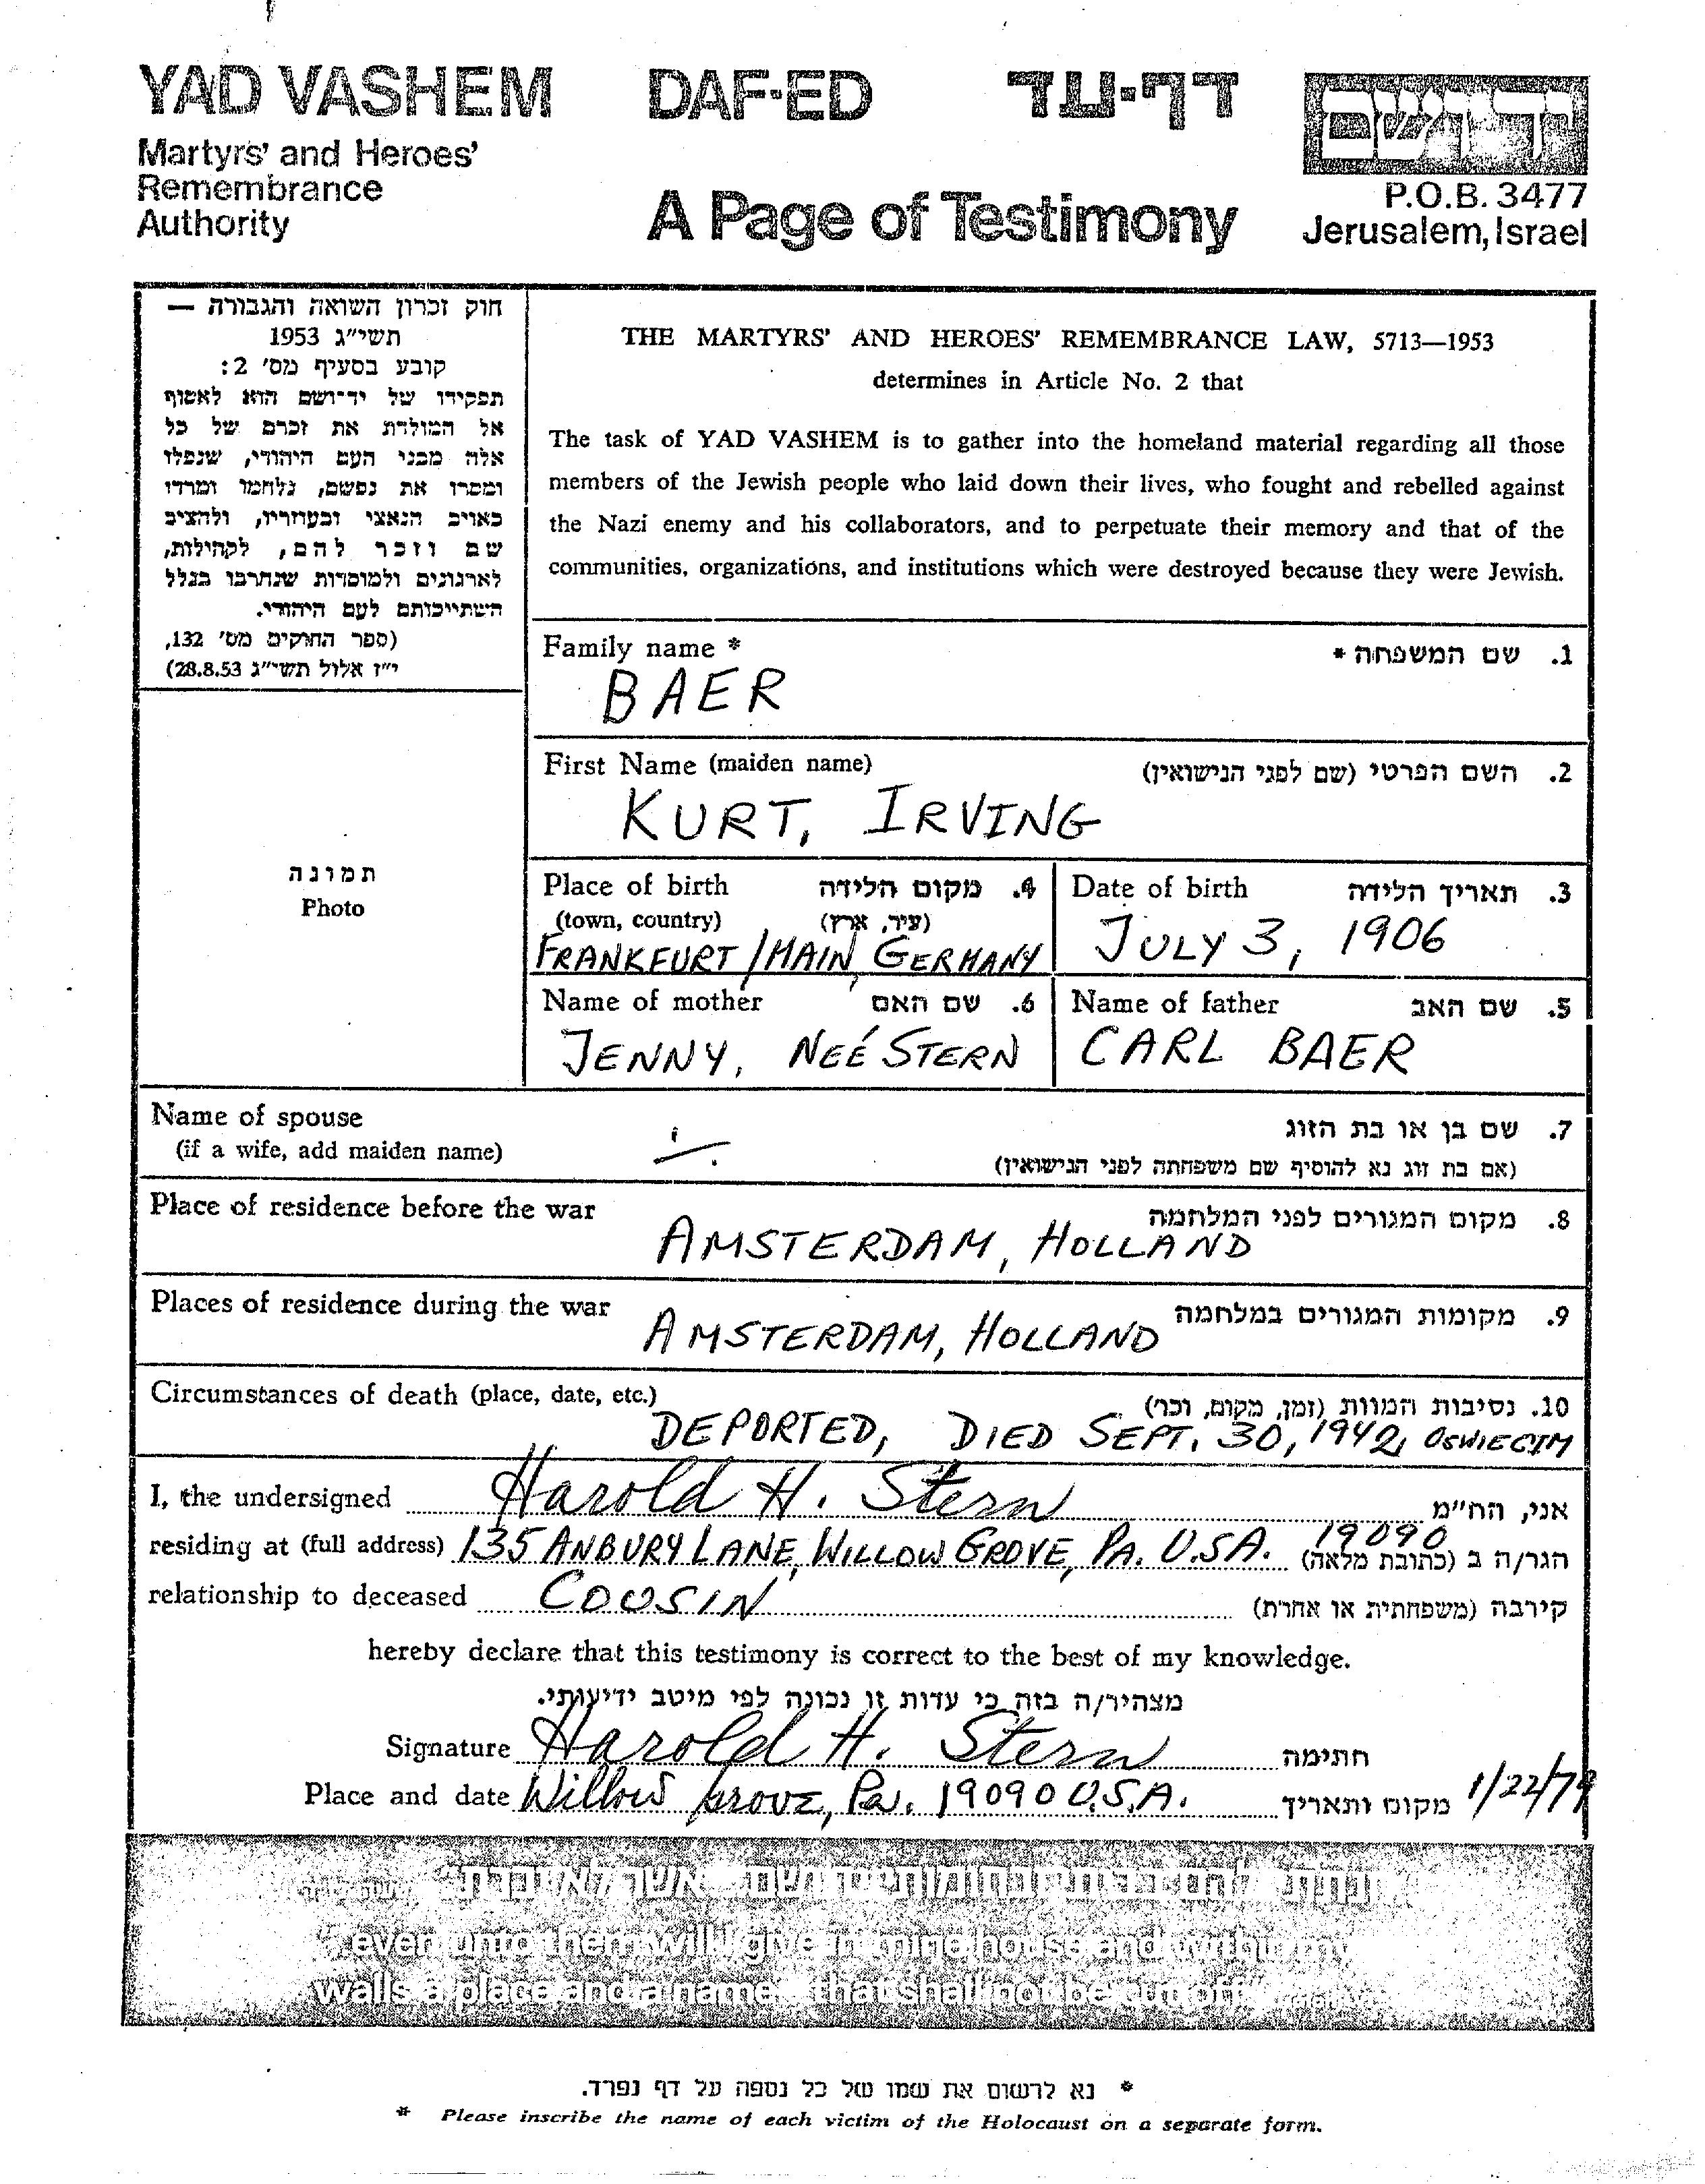 YAD VASHEM DAF-ED דף-עד ידושם
Martyrs' and Heroes'
Remembrance
Authority
A Page of Testimony
P.O.B. 3477
Jerusalem, Israel
חוק זכרון השואה והגבורה —
תשי"ג 1953
קובע בסעיף מס' 2:
תפקידו של יד־ושם הוא לאסוף
אל המולדת את זכרם של כל
אלה מבני העם היהודי, שנפלו
ומסרו את נפשם, נלחמו ומרדו
באויב הנאצי ובעוזריו, ולהציב
שם וזכר להם, לקהילות,
לארגונים ולמוסדות שנחרבו בגלל
השתייכותם לעם היהודי.
(ספר החוקים מס' 132,
י"ז אלול תשי"ג 28.8.53)
THE MARTYRS' AND HEROES' REMEMBRANCE LAW, 5713—1953
determines in Article No. 2 that
The task of YAD VASHEM is to gather into the homeland material regarding all those
members of the Jewish people who laid down their lives, who fought and rebelled against
the Nazi enemy and his collaborators, and to perpetuate their memory and that of the
communities, organizations, and institutions which were destroyed because they were Jewish.
Family name * 1. שם המשפחה *
BAER
First Name (maiden name) 2. השם הפרטי (שם לפני הנישואין)
KURT, IRVING
תמונה
Photo
Place of birth 4. מקום הלידה
(town, country) (עיר, ארץ)
FRANKFURT/MAIN, GERMANY
Date of birth 3. תאריך הלידה
JULY 3, 1906
Name of mother 6. שם האם
JENNY, NEÉ STERN
Name of father 5. שם האב
CARL BAER
Name of spouse 7. שם בן או בת הזוג
(if a wife, add maiden name) (אם בת זוג נא להוסיף שם משפחתה לפני הנישואין)
Place of residence before the war 8. מקום המגורים לפני המלחמה
AMSTERDAM, HOLLAND
Places of residence during the war 9. מקומות המגורים במלחמה
AMSTERDAM, HOLLAND
Circumstances of death (place, date, etc.) 10. נסיבות המוות (זמן, מקום, וכו')
DEPORTED, DIED SEPT. 30, 1942, OSWIECIM
I, the undersigned Harold H. Stern אני, הח"מ
residing at (full address) 135 ANBURY LANE, WILLOW GROVE, PA. U.S.A. 19090 הגר/ה ב (כתובת מלאה)
relationship to deceased COUSIN קירבה (משפחתית או אחרת)
hereby declare that this testimony is correct to the best of my knowledge.
מצהיר/ה בזה כי עדות זו נכונה לפי מיטב ידיעותי.
Signature Harold H. Stern חתימה
Place and date Willow Grove, Pa. 19090 U.S.A. מקום ותאריך 1/22/79
ונתתי להם בביתי ובחומותי יד ושם אשר לא יכרת
even unto them will I give in mine house and within my
walls a place and a name that shall not be cut off
* נא לרשום את שמו של כל נספה על דף נפרד.
* Please inscribe the name of each victim of the Holocaust on a separate form.